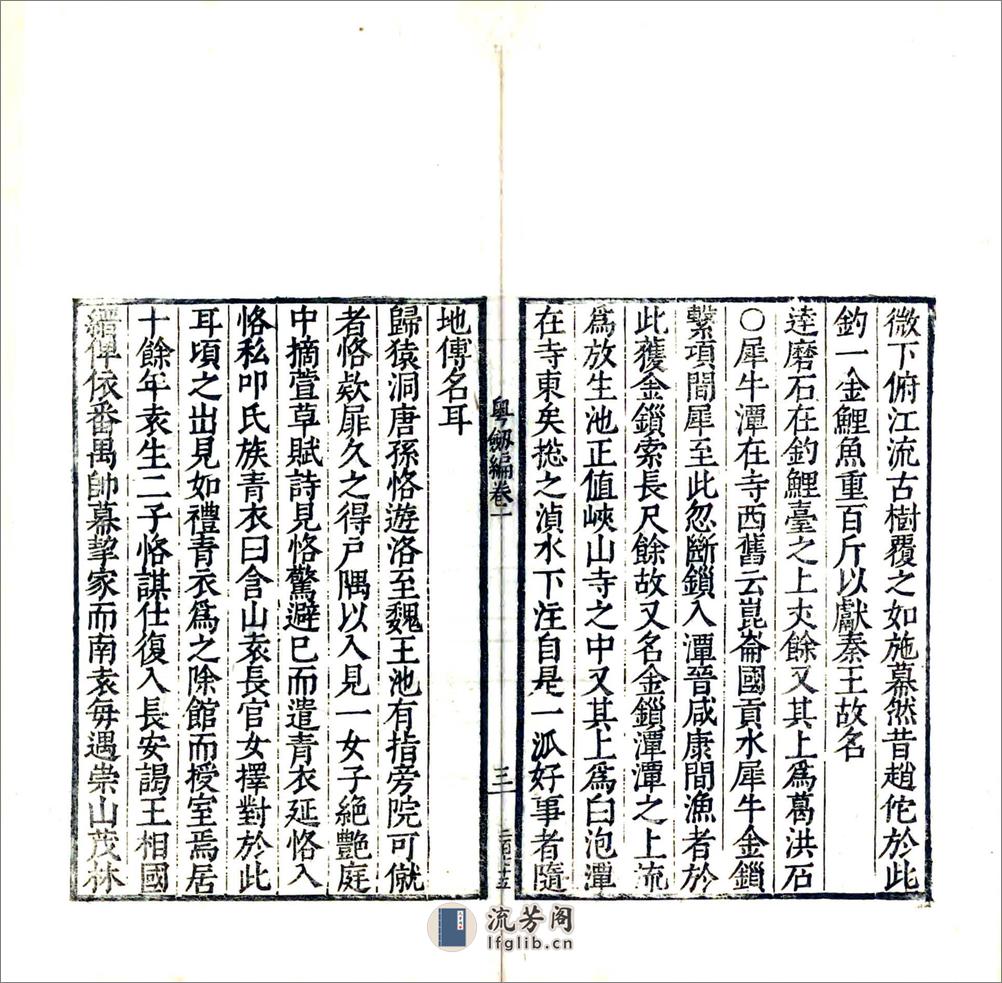 微下俯江流古樹覆之如施幕然昔趙佗於此
釣一金鯉魚重百斤以獻秦王故名
達磨石在釣鯉臺之上丈餘又其上爲葛洪石
〇犀牛潭在寺西舊云崑崙國貢水犀牛金鎖
繫項間犀至此忽斷鎖入潭晉咸康間漁者於
此獲金鎖索長尺餘故又名金鎖潭潭之上流
爲放生池正值峽山寺之中又其上爲白泡潭
在寺東矣揔之湞水下注自是一派好事者隨
粤劒編卷一
三
地傳名耳
歸猿洞唐孫恪遊洛至魏王池有指旁院可僦
者恪欵扉久之得戶隅以入見一女子絶艷庭
中摘萱草賦詩見恪驚避已而遣青衣延恪入
恪私叩氏族青衣曰含山袁長官女擇對於此
耳頃之出見如禮青衣爲之除館而授室焉居
十餘年袁生二子恪謀仕復入長安謁王相國
縉俾依番禺帥幕挈家而南袁每遇崇山茂林
流芳阁
lfglib.cn